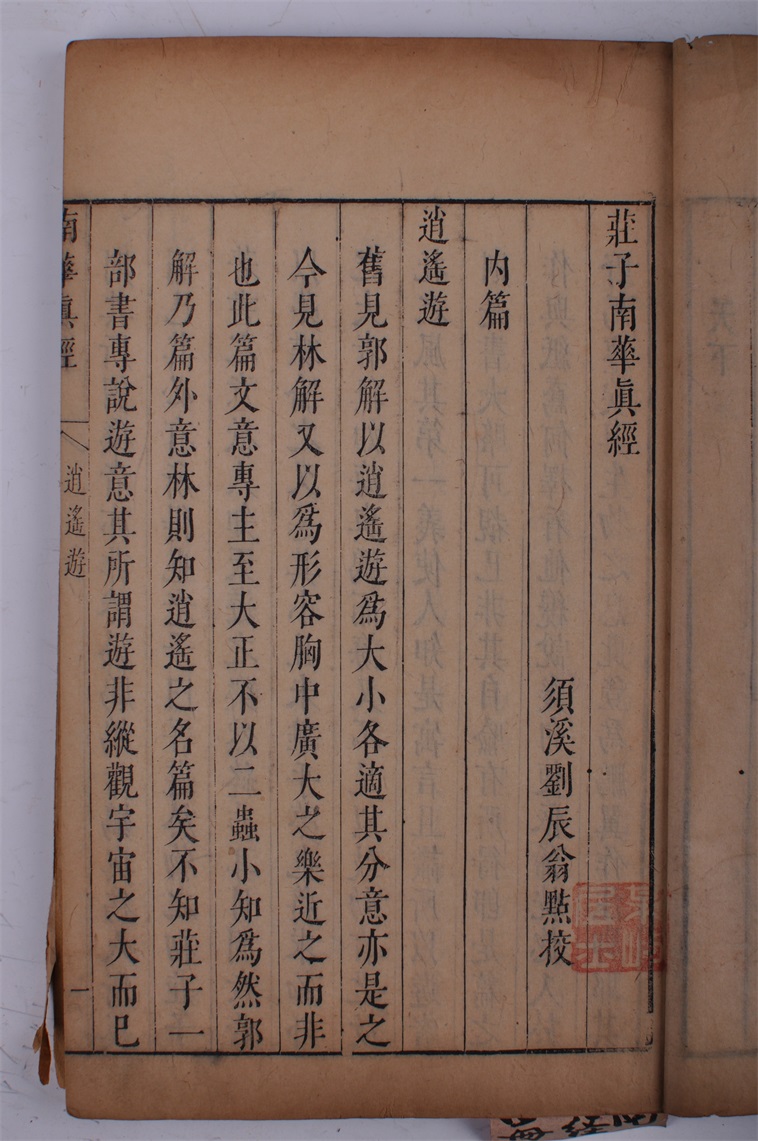 莊子南華眞經
須溪劉辰翁點校
內篇
逍遙遊
舊見郭解以逍遙遊爲大小各適其分意亦是之
今見林解又以爲形容胸中廣大之樂近之而非
也此篇文意專主至大正不以二蟲小知爲然郭
解乃篇外意林則知逍遙之名篇矣不知莊子一
部書專說遊意其所謂遊非縱觀宇宙之大而已
南華眞經
逍遙遊
一